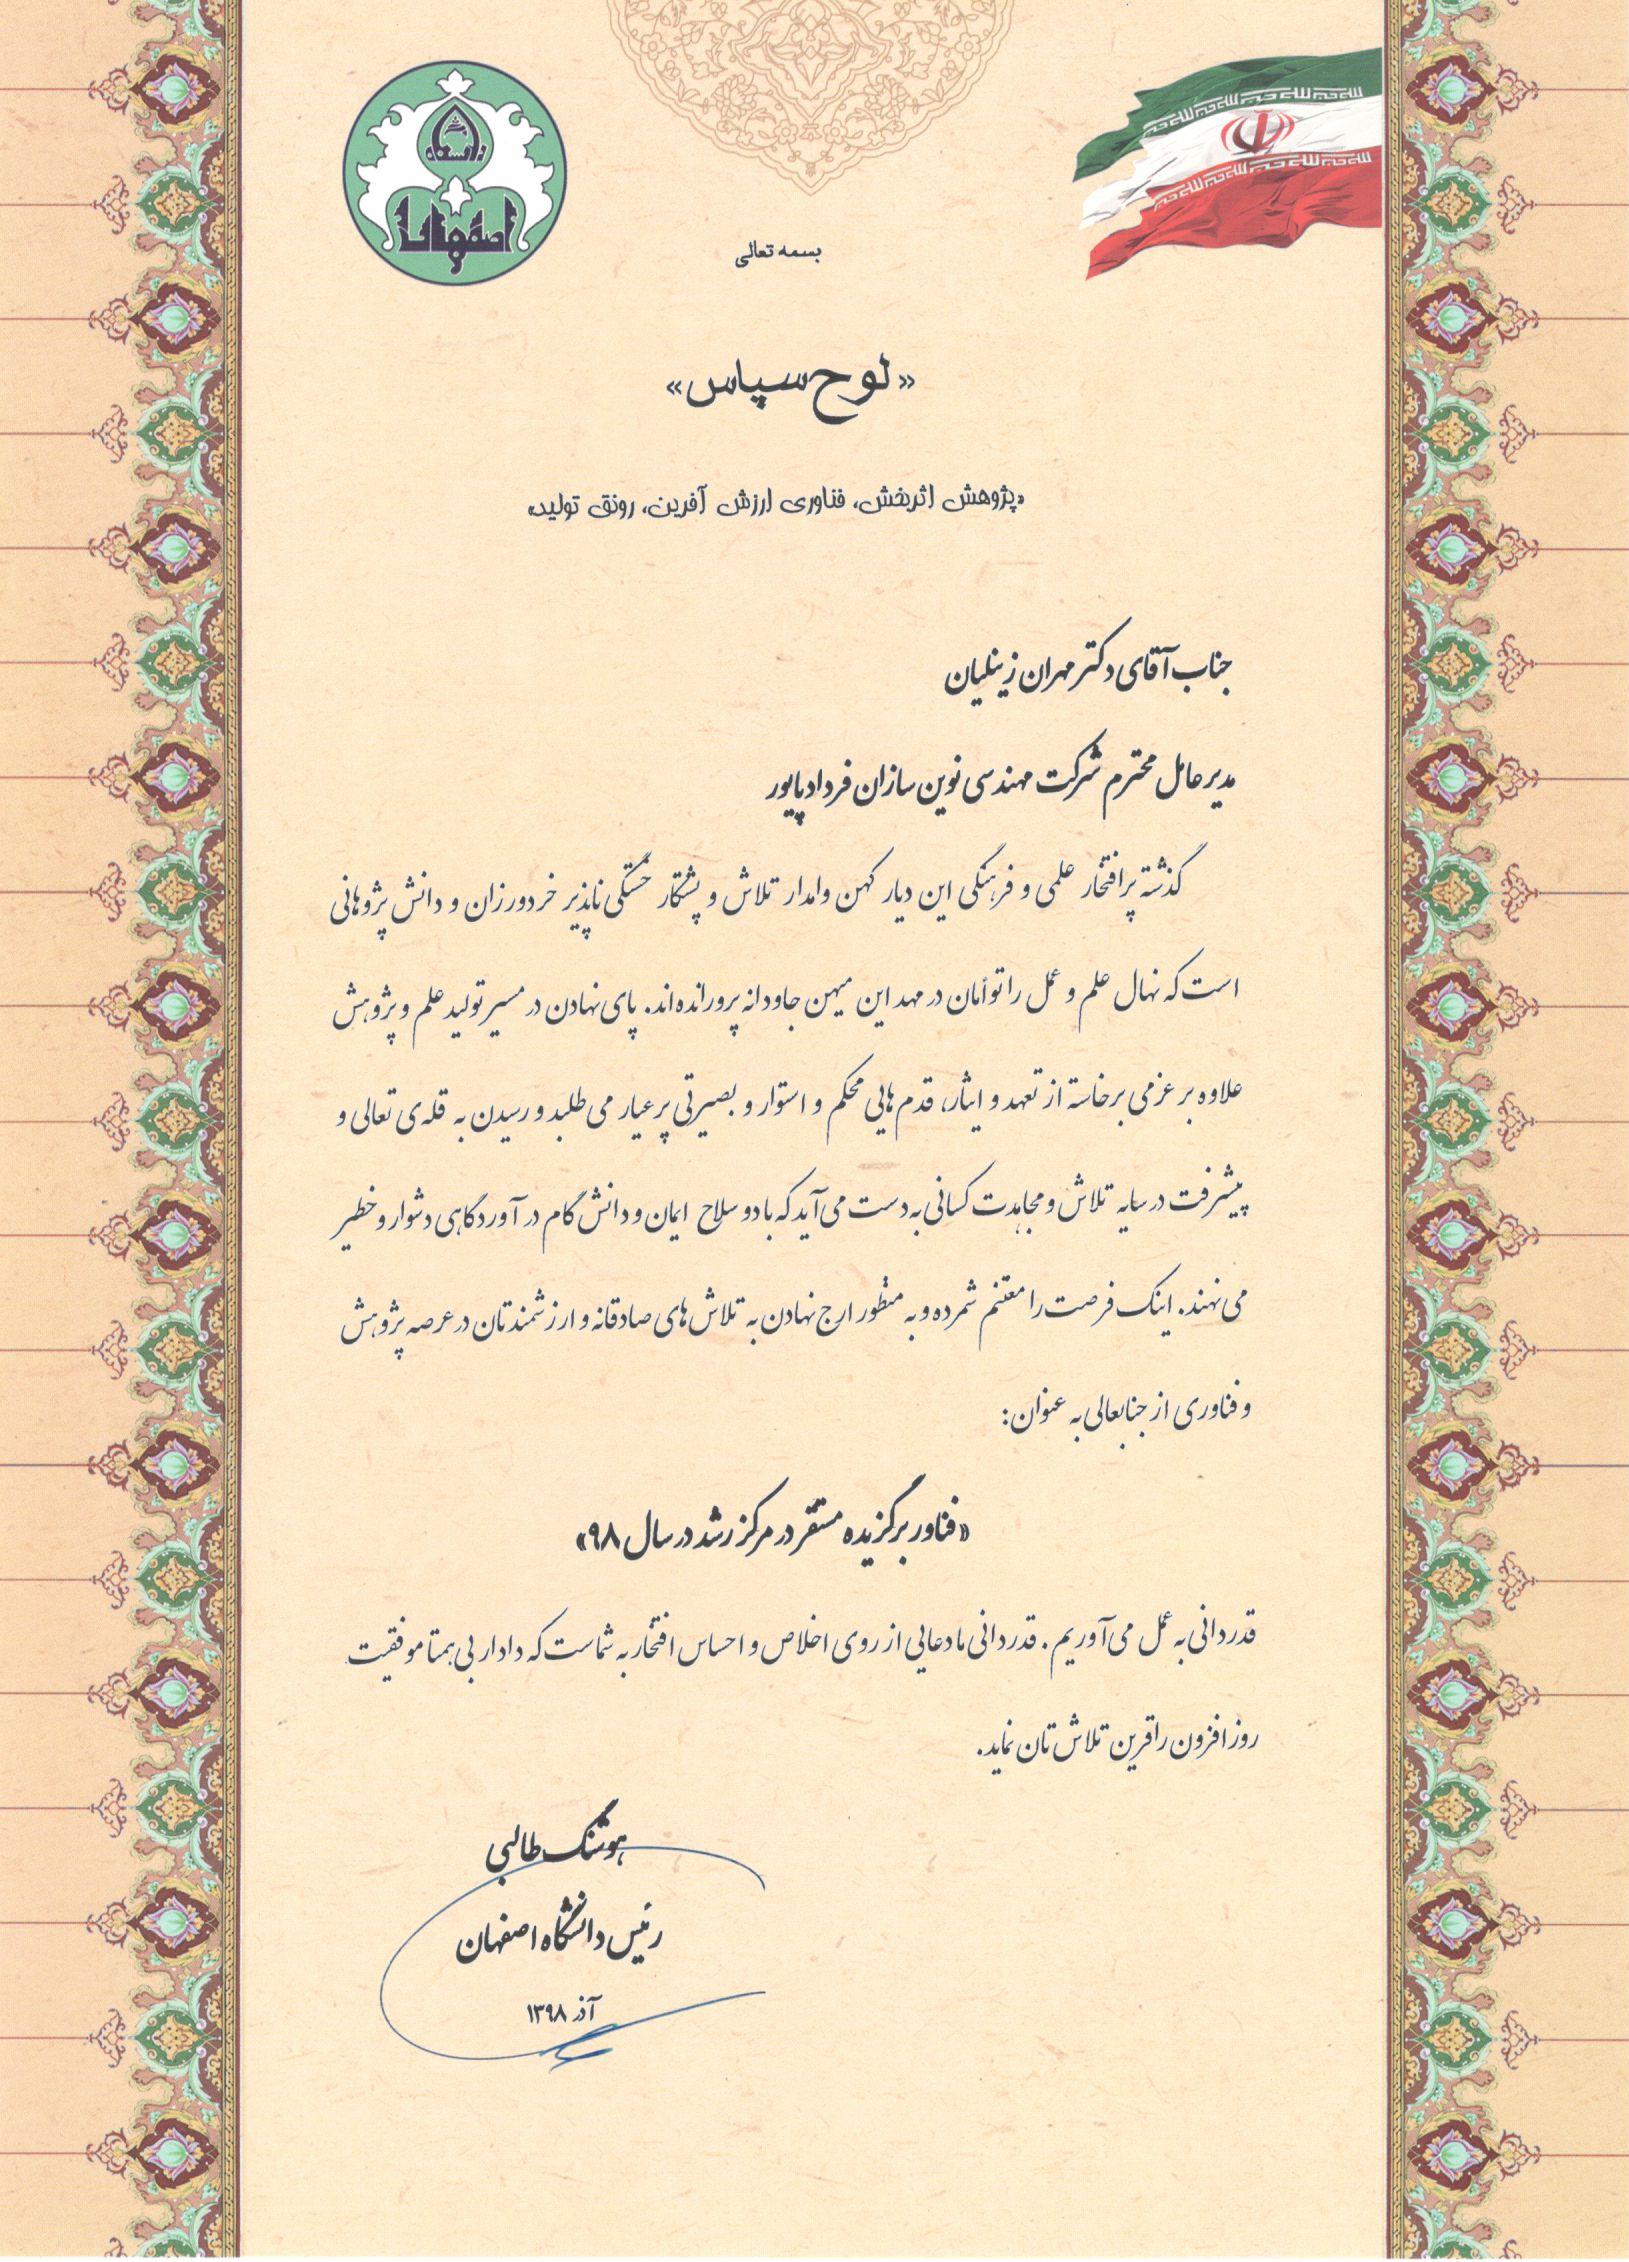 دانشگاه
اصفهان
بسمه تعالی
«لوح سپاس»
«پژوهش اثربخش، فناوری ارزش آفرین، رونق تولید»
جناب آقای دکتر مهران زینلیان
مدیر عامل محترم شرکت مهندسی نوین سازان فرداد پاپور
گذشته پر افتخار علمی و فرهنگی این دیار کهن وامدار تلاش و پشتکار خستگی ناپذیر خردورزان و دانش پژوهانی
است که نهال علم و عمل را توأمان در مهد این میهن جاودانه پرورانده‌اند. پای نهادن در مسیر تولید علم و پژوهش
علاوه بر عزمی برخاسته از تعهد و ایثار، قدم هایی محکم و استوار و بصیرتی پر عیار می طلبد و رسیدن به قله‌ی تعالی و
پیشرفت در سایه تلاش و مجاهدت کسانی به دست می آید که با دو سلاح ایمان و دانش گام در آوردگاهی دشوار و خطیر
می نهند. اینک فرصت را مغتنم شمرده و به منظور ارج نهادن به تلاش های صادقانه و ارزشمندتان در عرصه پژوهش
و فناوری از جنابعالی به عنوان:
«فناور برگزیده مستقر در مرکز رشد در سال ۹۸»
قدردانی به عمل می آوریم. قدردانی ما دعایی از روی اخلاص و احساس افتخار به شماست که دادار بی همتا موفقیت
روز افزون را قرین تلاش تان نماید.
هوشنگ طالبی
رئیس دانشگاه اصفهان
آذر ۱۳۹۸